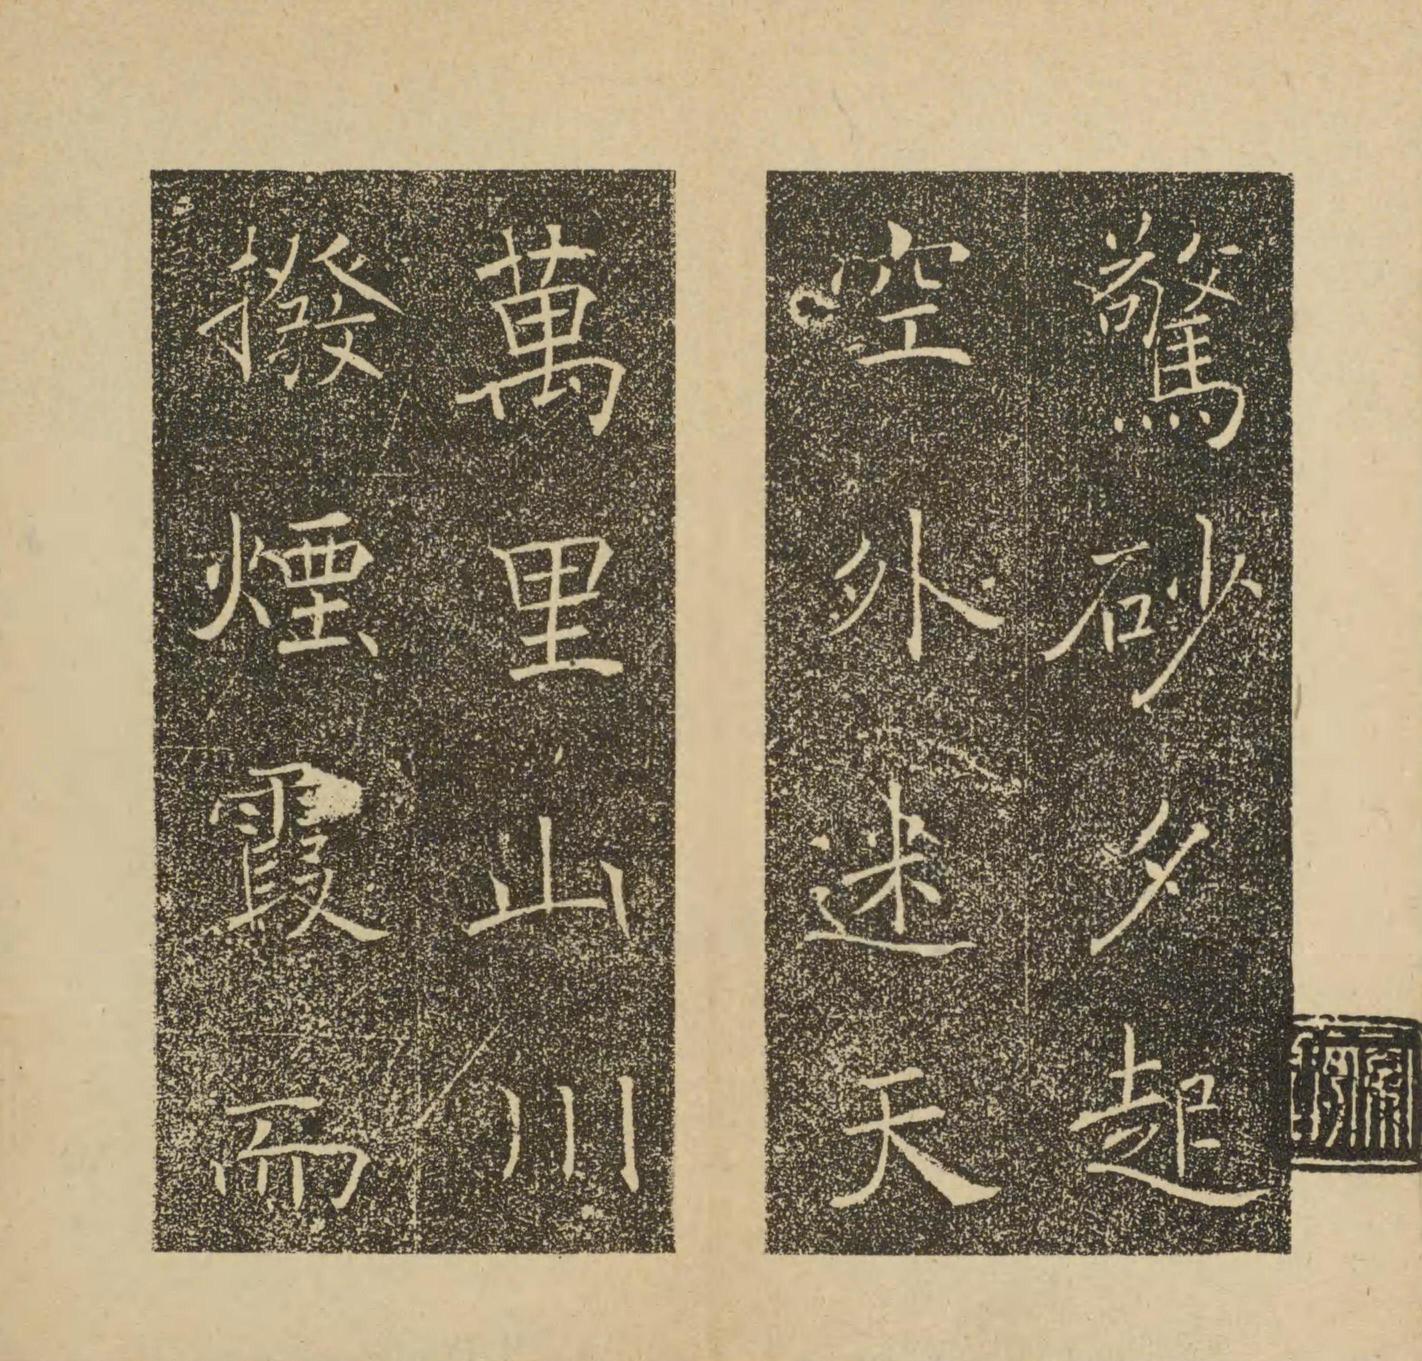 驚砂夕起
空外迷天
萬里山川
撥煙霞而